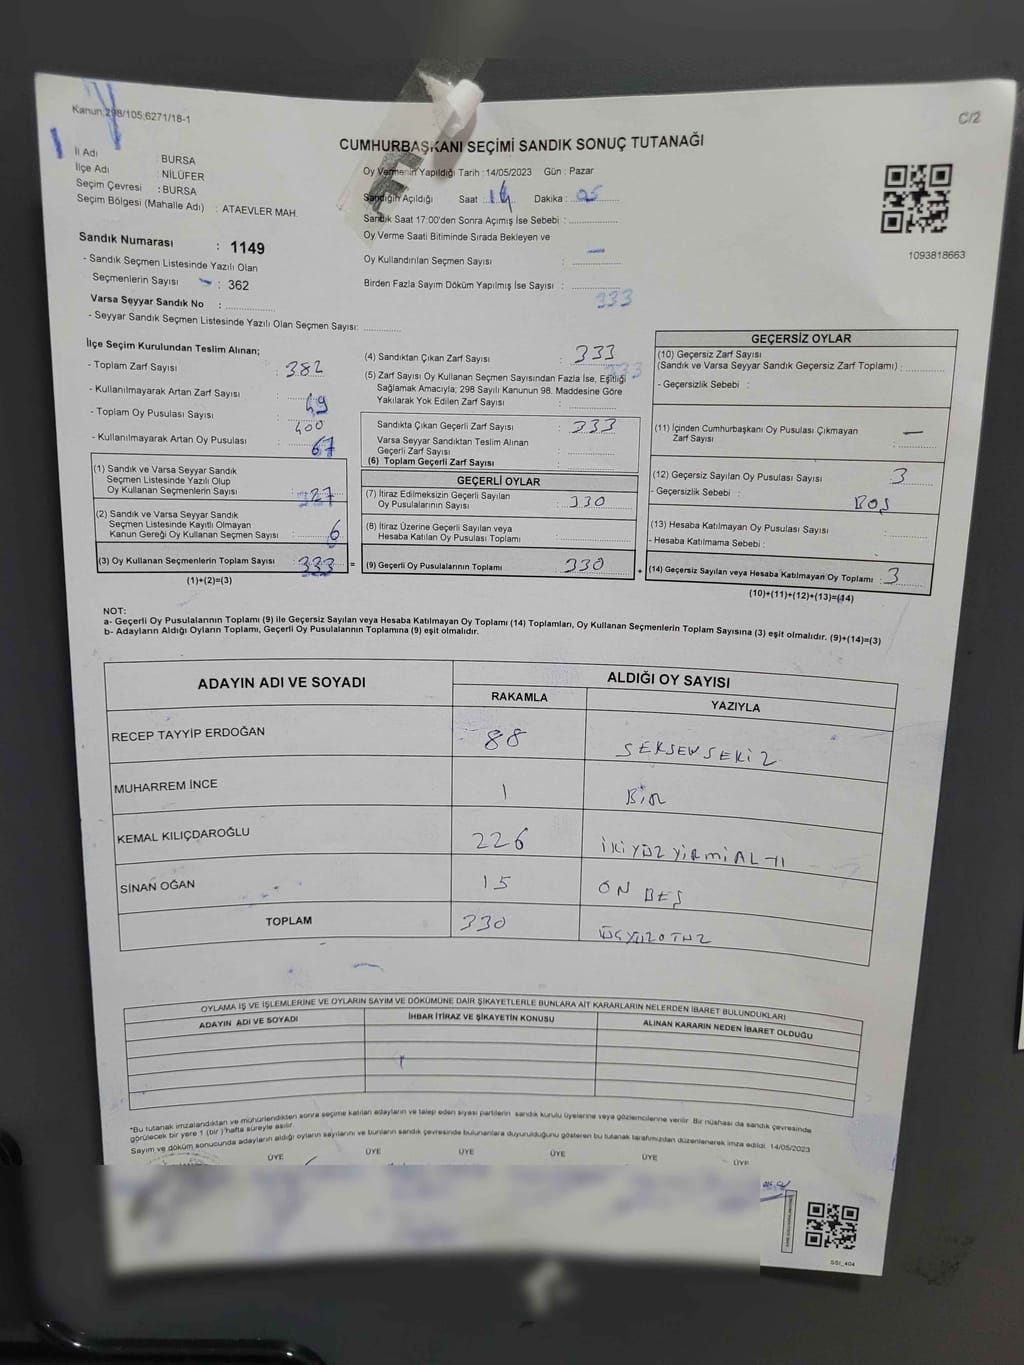 Kanun:298/105;6271/18-1
C/2
CUMHURBAŞKANI SEÇİMİ SANDIK SONUÇ TUTANAĞI
İl Adı : BURSA
İlçe Adı : NİLÜFER
Seçim Çevresi : BURSA
Seçim Bölgesi (Mahalle Adı) : ATAEVLER MAH.
Oy Vermenin Yapıldığı Tarih :14/05/2023 Gün : Pazar
Sandığın Açıldığı Saat : Dakika : 05
Sandık Saat 17:00'den Sonra Açımış İse Sebebi :
Oy Verme Saati Bitiminde Sırada Bekleyen ve
Oy Kullandırılan Seçmen Sayısı : —
Birden Fazla Sayım Döküm Yapılmış İse Sayısı :
333
1093818663
Sandık Numarası : 1149
- Sandık Seçmen Listesinde Yazılı Olan
Seçmenlerin Sayısı : 362
Varsa Seyyar Sandık No :
- Seyyar Sandık Seçmen Listesinde Yazılı Olan Seçmen Sayısı:
İlçe Seçim Kurulundan Teslim Alınan;
- Toplam Zarf Sayısı : 382
- Kullanılmayarak Artan Zarf Sayısı : 49
- Toplam Oy Pusulası Sayısı : 400
- Kullanılmayarak Artan Oy Pusulası : 67
(1) Sandık ve Varsa Seyyar Sandık
Seçmen Listesinde Yazılı Olup
Oy Kullanan Seçmenlerin Sayısı : 327
(2) Sandık ve Varsa Seyyar Sandık
Seçmen Listesinde Kayıtlı Olmayan
Kanun Gereği Oy Kullanan Seçmen Sayısı : 6
(3) Oy Kullanan Seçmenlerin Toplam Sayısı : 333 =
(1)+(2)=(3)
(4) Sandıktan Çıkan Zarf Sayısı : 333
333
(5) Zarf Sayısı Oy Kullanan Seçmen Sayısından Fazla İse, Eşitliği
Sağlamak Amacıyla; 298 Sayılı Kanunun 98. Maddesine Göre
Yakılarak Yok Edilen Zarf Sayısı :
Sandıkta Çıkan Geçerli Zarf Sayısı : 333
Varsa Seyyar Sandıktan Teslim Alınan
Geçerli Zarf Sayısı :
(6) Toplam Geçerli Zarf Sayısı :
GEÇERLİ OYLAR
(7) İtiraz Edilmeksizin Geçerli Sayılan
Oy Pusulalarının Sayısı : 330
(8) İtiraz Üzerine Geçerli Sayılan veya
Hesaba Katılan Oy Pusulası Toplamı :
(9) Geçerli Oy Pusulalarının Toplamı : 330 +
GEÇERSİZ OYLAR
(10) Geçersiz Zarf Sayısı
(Sandık ve Varsa Seyyar Sandık Geçersiz Zarf Toplamı) :
- Geçersizlik Sebebi :
(11) İçinden Cumhurbaşkanı Oy Pusulası Çıkmayan
Zarf Sayısı : —
(12) Geçersiz Sayılan Oy Pusulası Sayısı : 3
- Geçersizlik Sebebi : BOŞ
(13) Hesaba Katılmayan Oy Pusulası Sayısı :
- Hesaba Katılmama Sebebi :
(14) Geçersiz Sayılan veya Hesaba Katılmayan Oy Toplamı : 3
(10)+(11)+(12)+(13)=(14)
NOT:
a- Geçerli Oy Pusulalarının Toplamı (9) ile Geçersiz Sayılan veya Hesaba Katılmayan Oy Toplamı (14) Toplamları, Oy Kullanan Seçmenlerin Toplam Sayısına (3) eşit olmalıdır. (9)+(14)=(3)
b- Adayların Aldığı Oyların Toplamı, Geçerli Oy Pusulalarının Toplamına (9) eşit olmalıdır.
ADAYIN ADI VE SOYADI
ALDIĞI OY SAYISI
RAKAMLA YAZIYLA
RECEP TAYYİP ERDOĞAN 88 SEKSENSEKİZ
MUHARREM İNCE 1 BİR
KEMAL KILIÇDAROĞLU 226 İKİYÜZYİRMİALTI
SİNAN OĞAN 15 ON BEŞ
TOPLAM 330 ÜÇYÜZOTUZ
OYLAMA İŞ VE İŞLEMLERİNE VE OYLARIN SAYIM VE DÖKÜMÜNE DAİR ŞİKAYETLERLE BUNLARA AİT KARARLARIN NELERDEN İBARET BULUNDUKLARI
ADAYIN ADI VE SOYADI İHBAR İTİRAZ VE ŞİKAYETİN KONUSU ALINAN KARARIN NEDEN İBARET OLDUĞU
*Bu tutanak imzalandıktan ve mühürlendikten sonra seçime katılan adayların ve talep eden siyasi partilerin sandık kurulu üyelerine veya gözlemcilerine verilir. Bir nüshası da sandık çevresinde
görülecek bir yere 1 (bir )'hafta süreyle asılır.
Sayım ve döküm sonucunda adayların aldığı oyların sayılarını ve bunların sandık çevresinde bulunanlara duyurulduğunu gösteren bu tutanak tarafımızdan düzenlenerek imza edildi. 14/05/2023
ÜYE ÜYE ÜYE ÜYE ÜYE ÜYE
SSI_404